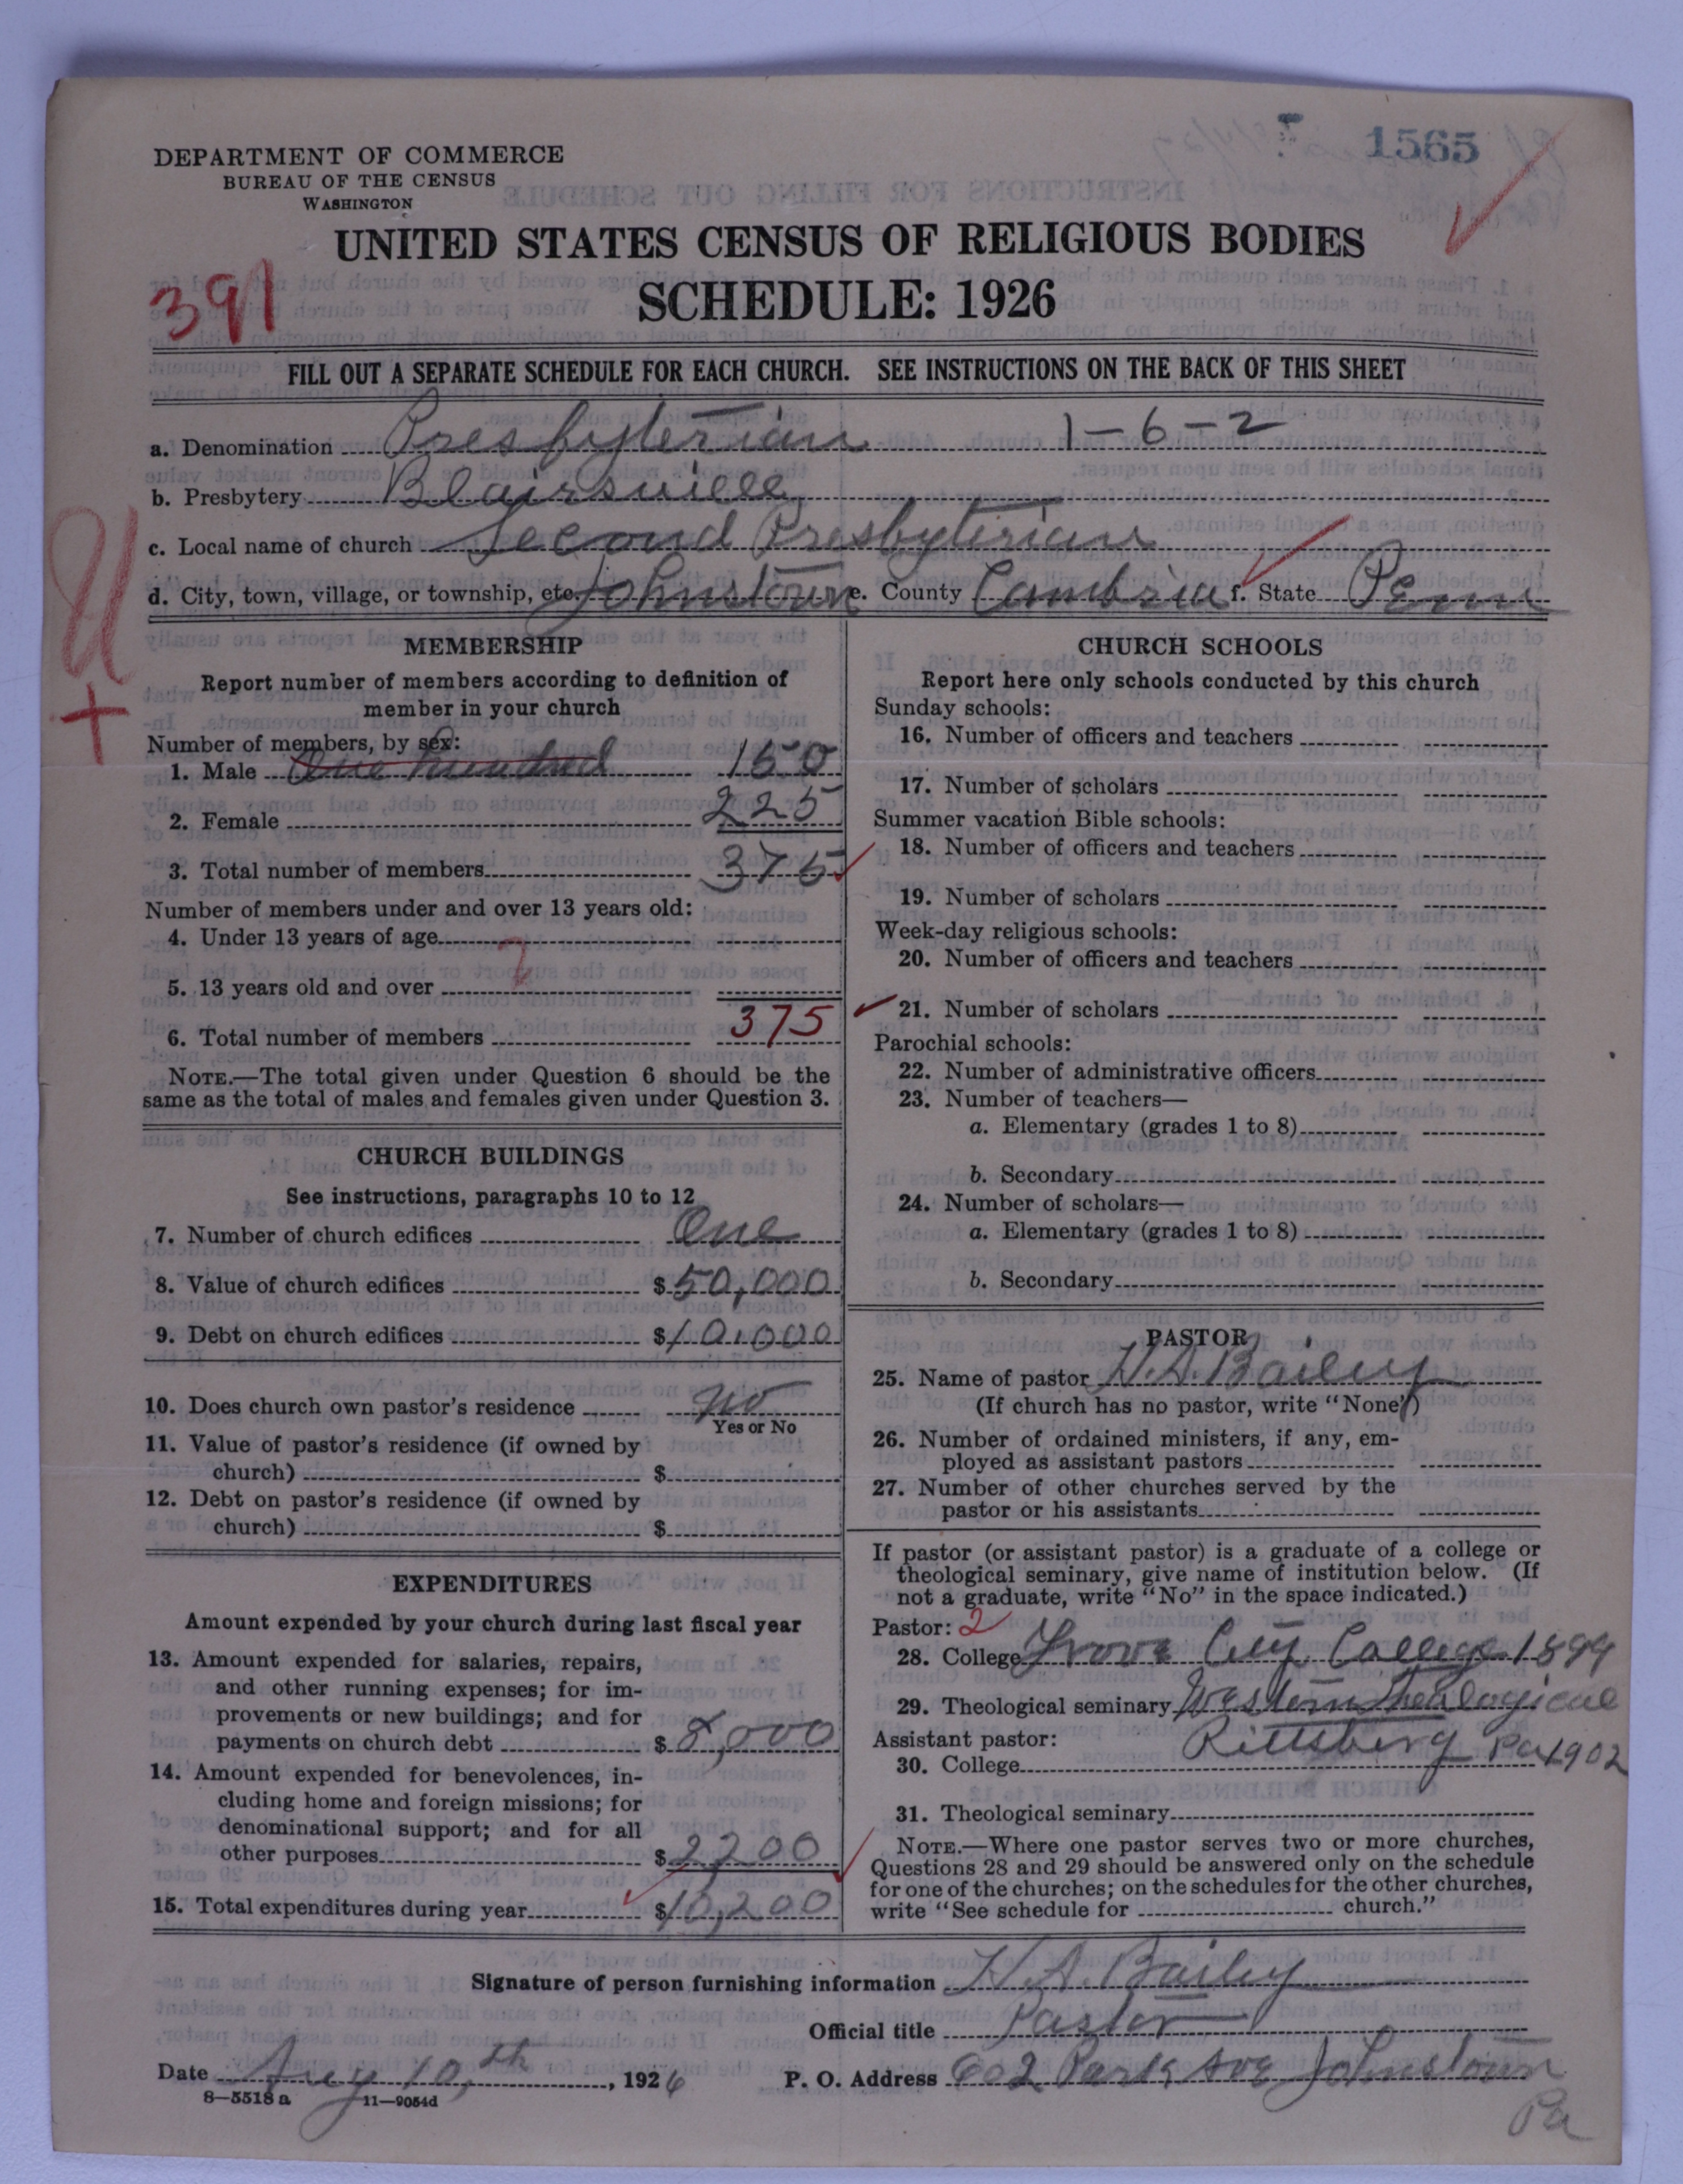 1565
DEPARTMENT OF COMMERCE
BUREAU OF THE CENSUS
WASHINGTON
UNITED STATES CENSUS OF RELIGIOUS BODIES
SCHEDULE: 1926
391
FILL OUT A SEPARATE SCHEDULE FOR EACH CHURCH. SEE INSTRUCTIONS ON THE BACK OF THIS SHEET
a. Denomination Presbyterian 1-6-2
b. Presbytery Blairsville
c. Local name of church Second Presbyterian
d. City, town, village, or township, etc. Johnstown e. County Cambria f. State Penn
MEMBERSHIP
Report number of members according to definition of
member in your church
Number of members, by sex:
1. Male One hundred 150
2. Female 225
3. Total number of members 375
Number of members under and over 13 years old:
4. Under 13 years of age
?
5. 13 years old and over
6. Total number of members 375
NOTE.—The total given under Question 6 should be the
same as the total of males and females given under Question 3.
CHURCH BUILDINGS
See instructions, paragraphs 10 to 12
7. Number of church edifices One
8. Value of church edifices $50,000
9. Debt on church edifices $10,000
10. Does church own pastor's residence No
Yes or No
11. Value of pastor's residence (if owned by
church) $
12. Debt on pastor's residence (if owned by
church) $
EXPENDITURES
Amount expended by your church during last fiscal year
13. Amount expended for salaries, repairs,
and other running expenses; for im-
provements or new buildings; and for
payments on church debt $ 8,000
14. Amount expended for benevolences, in-
cluding home and foreign missions; for
denominational support; and for all
other purposes $2200
15. Total expenditures during year $10,200
CHURCH SCHOOLS
Report here only schools conducted by this church
Sunday schools:
16. Number of officers and teachers
17. Number of scholars
Summer vacation Bible schools:
18. Number of officers and teachers
19. Number of scholars
Week-day religious schools:
20. Number of officers and teachers
21. Number of scholars
Parochial schools:
22. Number of administrative officers
23. Number of teachers—
a. Elementary (grades 1 to 8)
b. Secondary
24. Number of scholars—
a. Elementary (grades 1 to 8)
b. Secondary
PASTOR
25. Name of pastor H. A. Bailey
(If church has no pastor, write "None")
26. Number of ordained ministers, if any, em-
ployed as assistant pastors
27. Number of other churches served by the
pastor or his assistants
If pastor (or assistant pastor) is a graduate of a college or
theological seminary, give name of institution below. (If
not a graduate, write "No" in the space indicated.)
Pastor: 2
28. College Grove City College 1899
29. Theological seminary Western Theological
Assistant pastor: Pittsberg Pa 1902
30. College
31. Theological seminary
NOTE.—Where one pastor serves two or more churches,
Questions 28 and 29 should be answered only on the schedule
for one of the churches; on the schedules for the other churches,
write "See schedule for church."
Signature of person furnishing information H. A. Bailey
Official title Pastor
Date Aug 10,th, 1926 P. O. Address 602 Park Ave Johnstown
Pa
8—5518 a 11—9054d